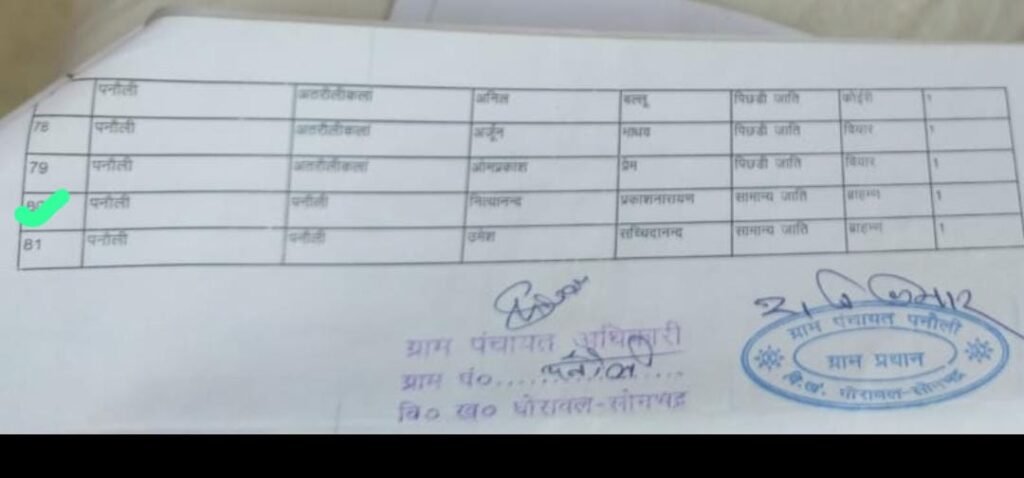 पनौली अतरौलीकला अनिल बल्लू पिछडी जाति कोईरी १
78 पनौली अतरौलीकला अर्जून माधव पिछडी जाति वियार १
79 पनौली अतरौलीकला ओमप्रकाश प्रेम पिछडी जाति वियार १
80 पनौली पनौली नित्यानन्द प्रकाशनारायण सामान्य जाति ब्राहम्ण १
81 पनौली पनौली उमेश सच्चिदानन्द सामान्य जाति ब्राहम्ण १
ग्राम पंचायत अधिकारी
ग्राम पं०.....पनौली.....
वि० ख० घोरावल-सोनभद्र
ग्राम पंचायत पनौली
ग्राम प्रधान
वि.ख. घोरावल-सोनभद्र